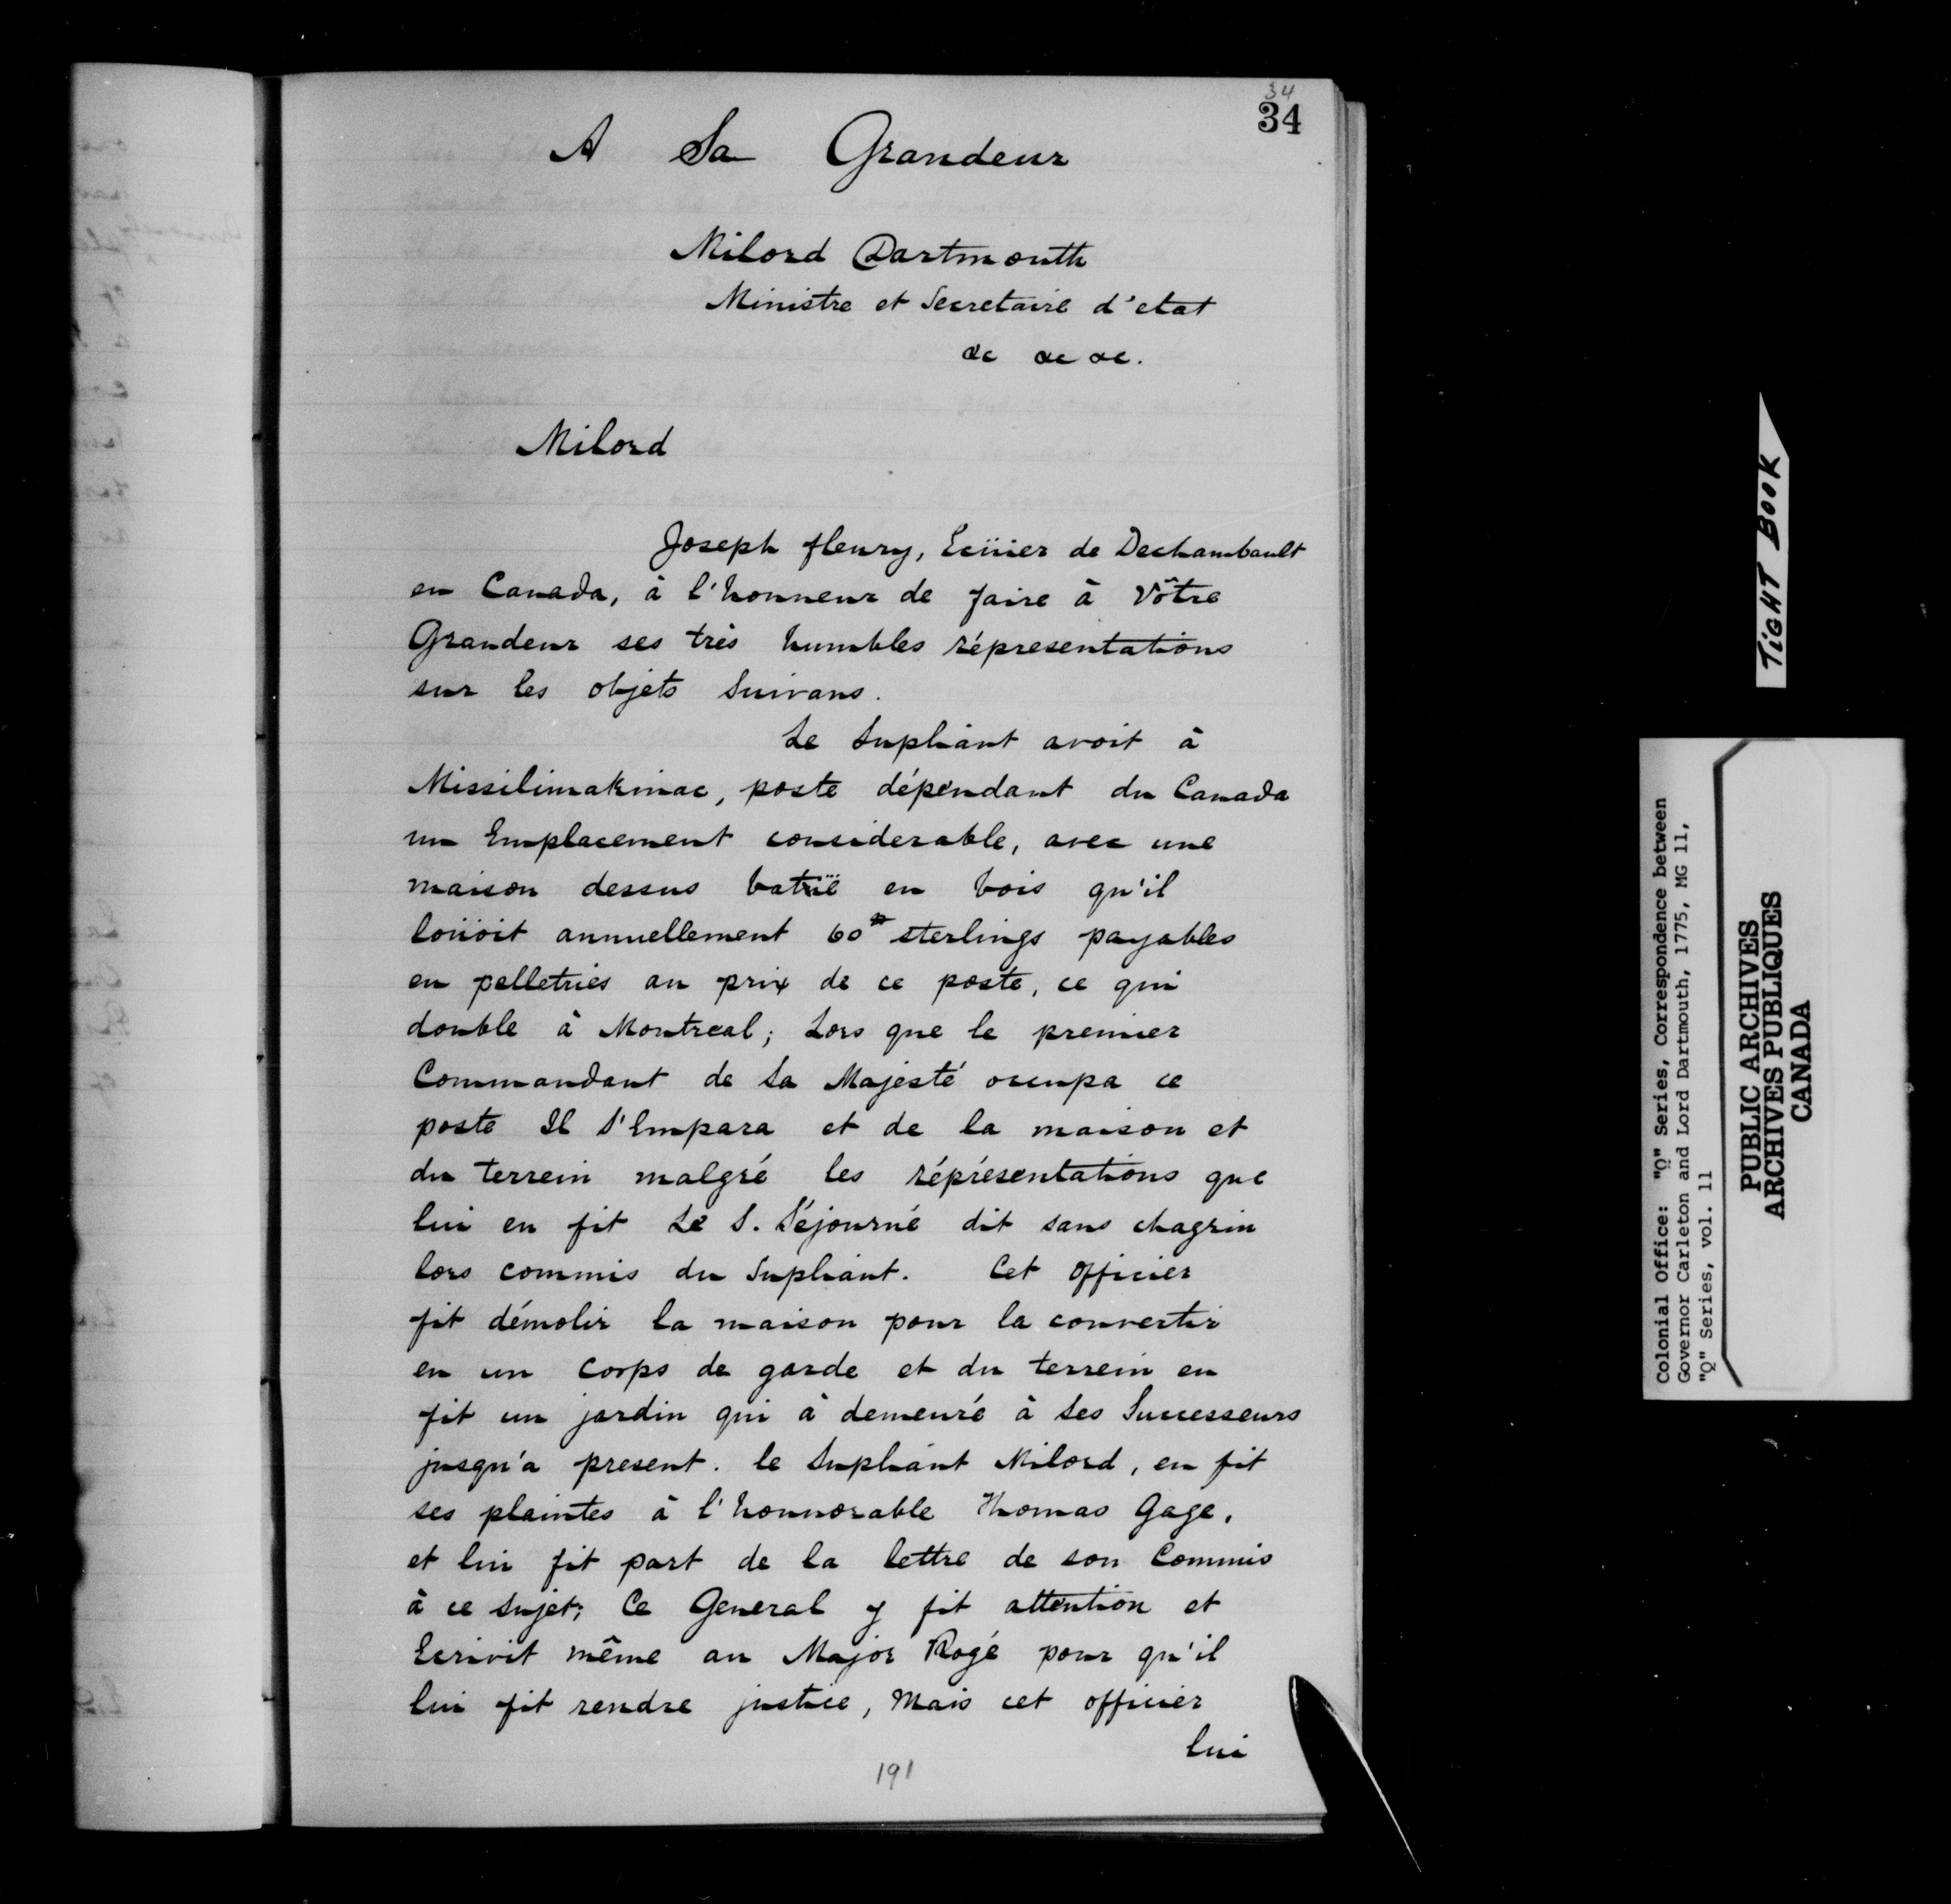 34
34
A Sa Grandeur
Milord Dartmouth
Ministre et Secretaire d'etat
&c &c &c.
Milord
Joseph fleury, Ecüier de Dechambault
en Canada, à l'honneur de faire à Vôtre
Grandeur ses très humbles réprésentations
sur les objets Suivans.
Le Supliant avoit à
Missilimakinac, poste dépendant du Canada
un Emplacement considerable, avec une
maison dessus batïe en bois qu'il
loüoit annuellement 60# sterlings payables
en pelletries au prix de ce poste, ce qui
double à Montreal; Lors que le premier
Commandant de Sa Majesté ocupa ce
poste Il S'Empara et de la maison et
du terrein malgré les réprésentations que
lui en fit Le S. Séjourné dit sans chagrin
lors commis du Supliant. Cet Officier
fit démolir la maison pour la convertir
en un corps de garde et du terrein en
fit un jardin qui à demeuré à Ses Successeurs
jusqu'a present. le Supliant Milord, en fit
ses plaintes à l'honnorable Thomas Gage,
et lui fit part de la lettre de son Commis
à ce Sujet; Ce General y fit attention et
Ecrivit même au Major Rogé pour qu'il
lui fit rendre justice, Mais cet officier
lui
191
TIGHT BOOK
Colonial Office: "Q" Series, Correspondence between
Governor Carleton and Lord Dartmouth, 1775, MG 11,
"Q" Series, vol. 11
PUBLIC ARCHIVES
ARCHIVES PUBLIQUES
CANADA